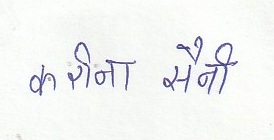 करीना सैनी